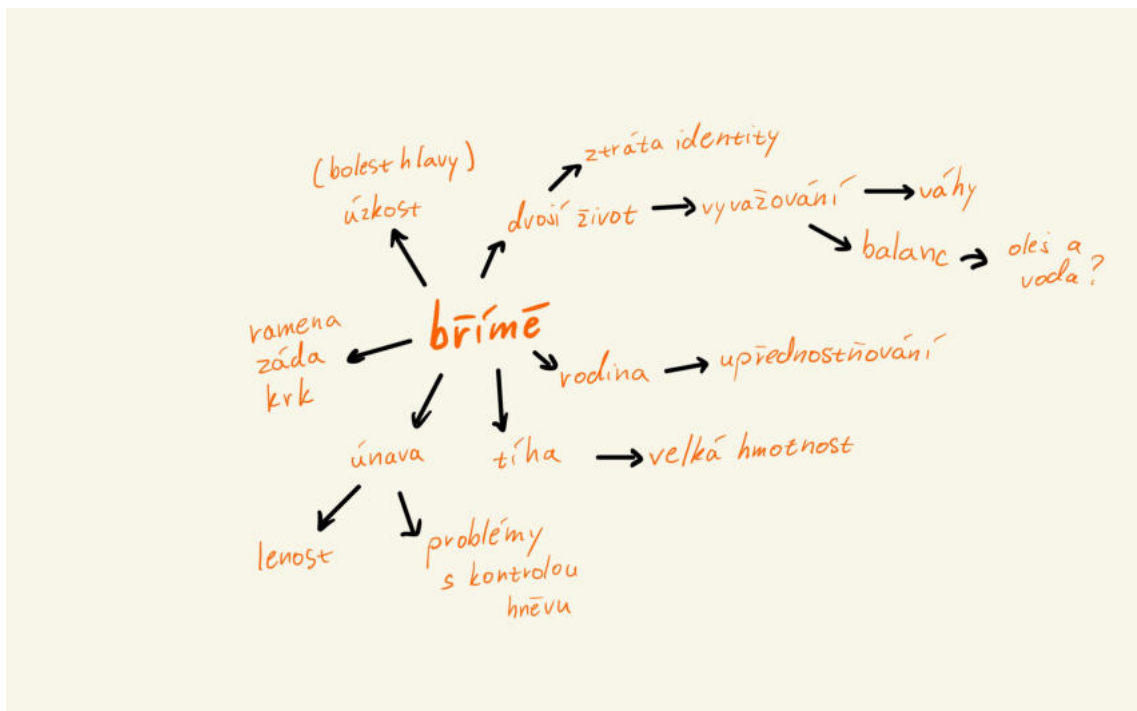 (bolest hlavy)
úzkost
ztráta identity
dvojí život
vyvažování
váhy
balanc
olej a
voda?
břímě
ramena
záda
krk
rodina
upřednostňování
únava
tíha
velká hmotnost
lenost
problémy
s kontrolou
hněvu